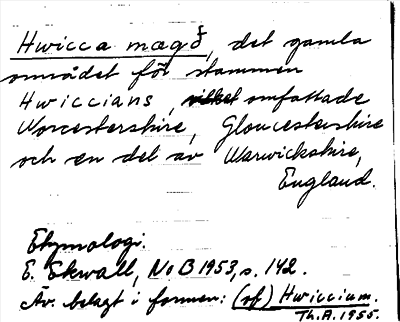 Hwicca mægð, det gamla
området för stammen
Hwiccians, vilket omfattade
Worcestershire, Gloucestershire
och en del av Warwickshire,
England.
Etymologi.
E. Ekwall, NoB 1953, s. 142.
Äv. belagt i formen: (of) Hwiccium.
Th.A. 1955.